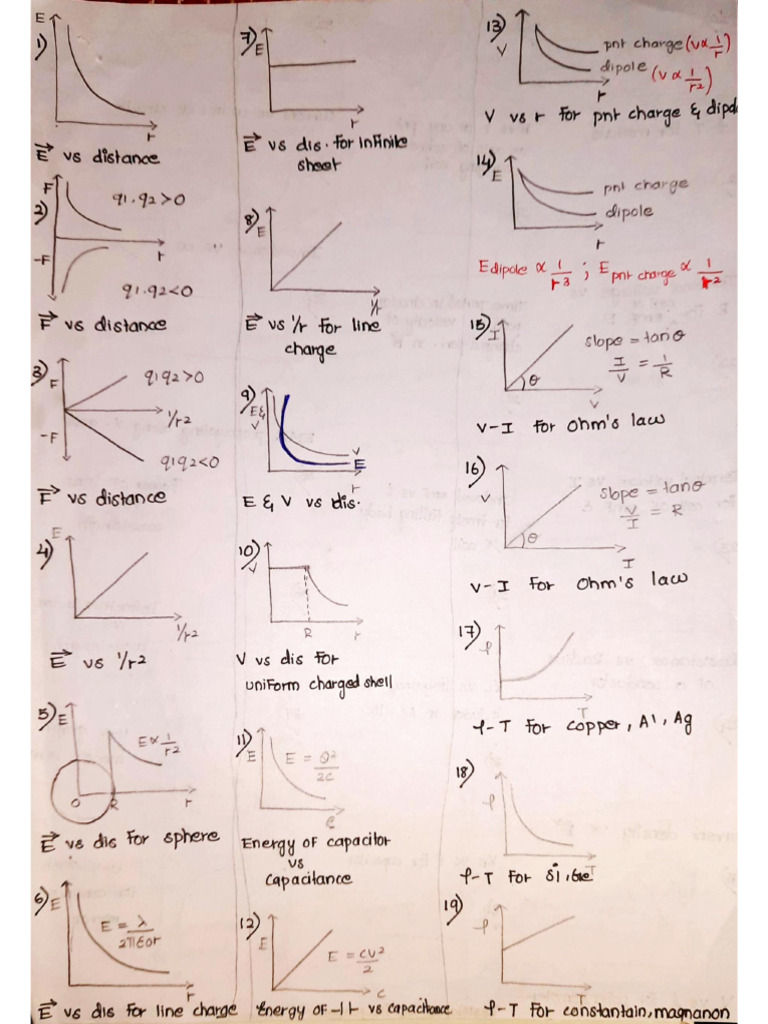 1)
E
r
E vs distance
2)
F
-F
q1.q2>0
r
q1.q2<0
F vs distance
3)
F
-F
q1q2>0
1/r2
q1q2<0
F vs distance
4)
E
1/r2
E vs 1/r2
5)
E
E∝1/r2
O
R
r
E vs dis for sphere
6)
E
E = λ/2πε0r
r
E vs dis for line charge
7)
E
r
E vs dis. for infinite
sheet
8)
E
1/r
E vs 1/r for line
charge
9)
E&
V
V
E
r
E & V vs dis.
10)
V
R
r
V vs dis for
uniform charged shell
11)
E
E = Q²/2C
C
Energy of capacitor
vs
capacitance
12)
E
E = CV²/2
C
Energy of ⊣⊢ vs capacitance
13)
V
pnt charge (V∝1/r)
dipole (V∝1/r2)
r
V vs r for pnt charge & dipole
14)
E
pnt charge
dipole
r
E dipole ∝ 1/r3 ; E pnt charge ∝ 1/r2
15)
I
slope = tanθ
I/V = 1/R
θ
V
V-I for ohm's law
16)
V
slope = tanθ
V/I = R
θ
I
V-I for ohm's law
17)
ρ
T
ρ-T for copper, Al, Ag
18)
ρ
T
ρ-T for Si, Ge
19)
ρ
T
ρ-T for constantain, magnanon